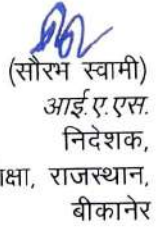 (सौरभ स्वामी)
आई.ए.एस.
निदेशक,
राजस्थान,
बीकानेर